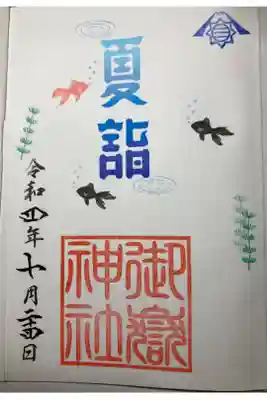 夏詣
御嶽神社
令和四年十月二十四日